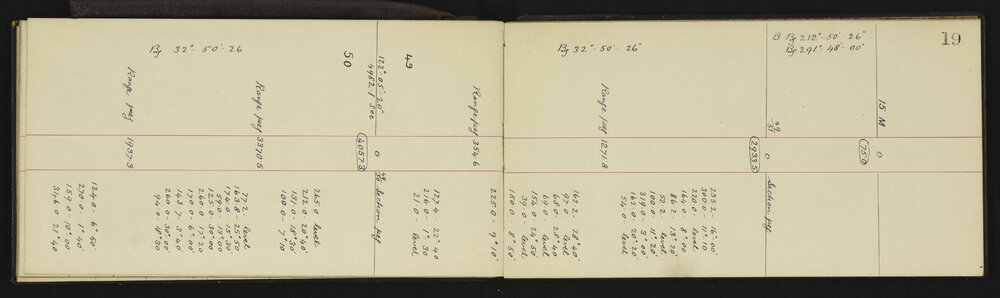 19
B Bg 212°- 50'- 26"
Bg 291°- 48'- 00"
15 M
0
750
49
0
2933.5
Section peg
235.2 - 16°00'
300.0 - 11°10'
220.0 - level
164.0 - 8°00'
86.2 - 13°20'
52.2 - level
100.0 - 11°20'
319.0 - 3°00'
162.0 - 20°20'
54.0 - level
Range peg 1271.8
Bg 32°- 50'- 26"
162.2 - 28°40'
97.0 - level
68.0 - 28°40'
69.0 - level
154.0 - 24°50'
39.0 - level
180.0 - 8°50'
225.0 - 9°10'
Range peg 354.6
49
122°- 05'- 20"
4982.1 Sec
50
0
4057.3
49
50 Section peg
179.4 - 22°40'
216.0 - 1°30'
21.0 - level
265.0 level
212.0 - 20°40'
151.0 - 18°30'
100.0 - 7°10'
Range peg 3370.5
Bg 32°- 50'- 26
77.2 - level
163.8 - 25°50'
174.0 - 15°30'
59.0 - 13°00'
125.0 - 30°00'
260.0 - 17°20'
170.0 - 6°00'
143.7 - 3°40'
260.0 - 30°00'
94.0 - 18°30'
Range peg 1937.3
124.0 - 6°50'
270.0 - 1°40'
159.0 - 10°00'
346.0 - 21°40'